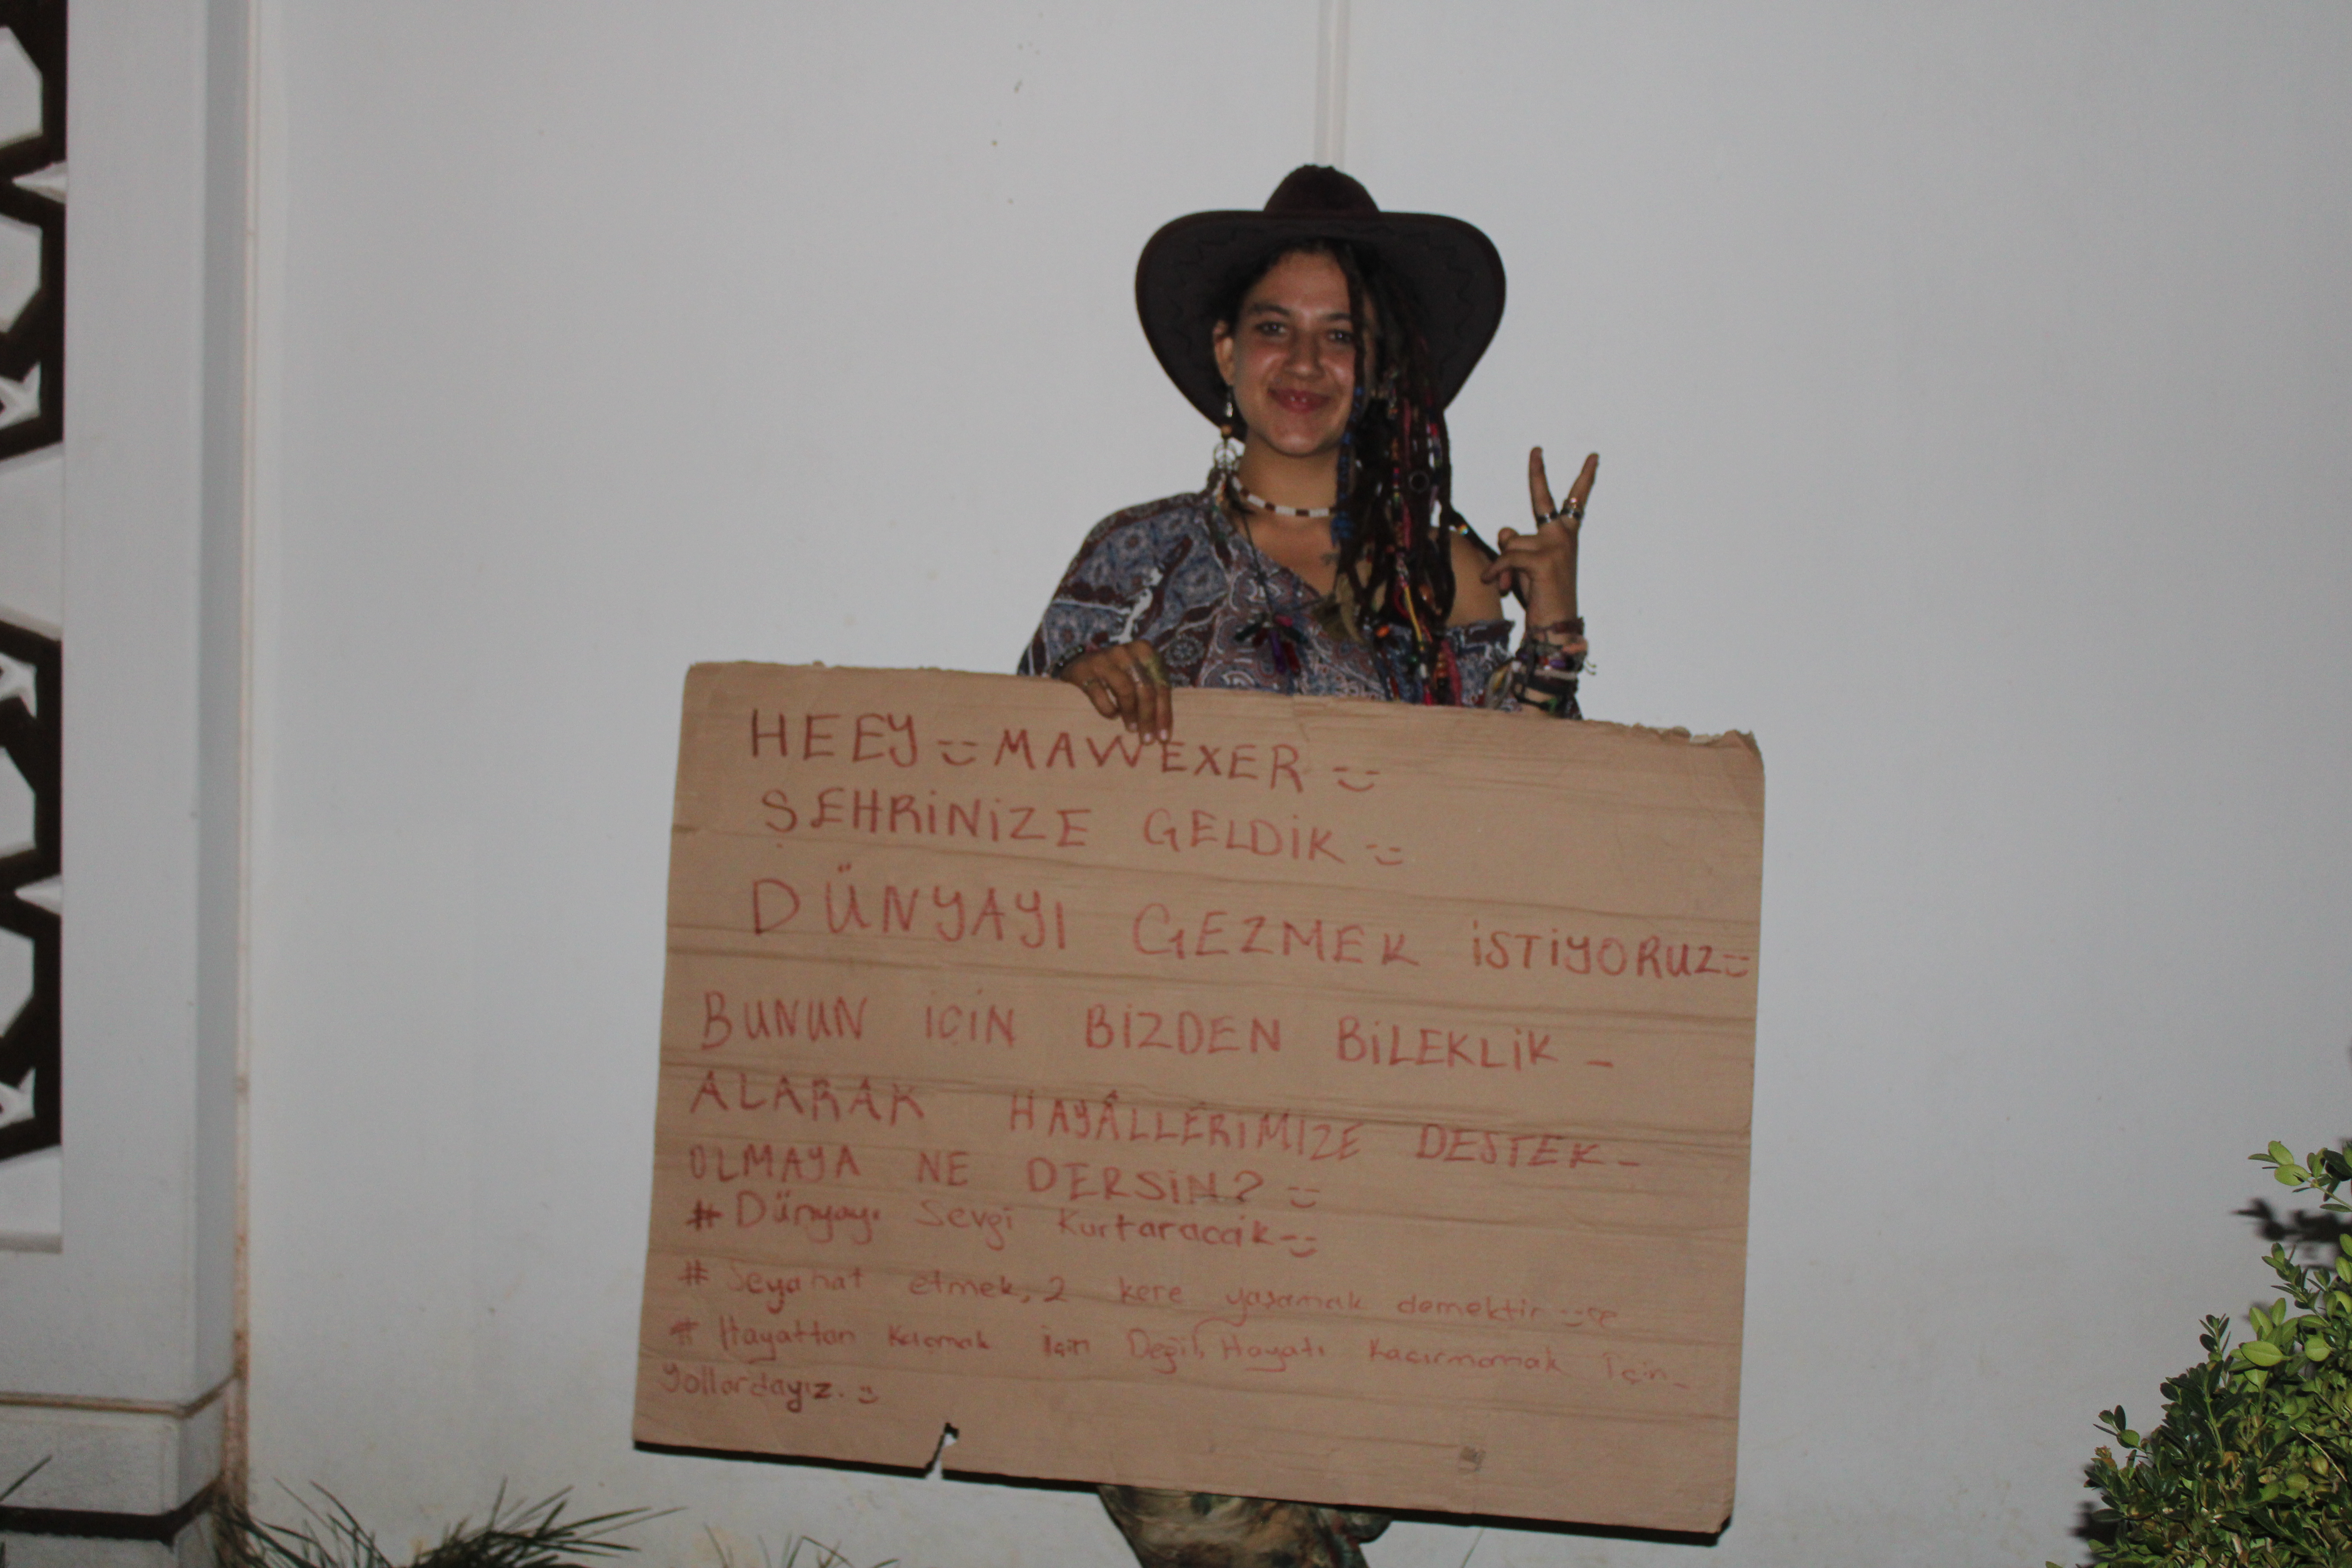 HEEY :) MAWEXER :)
ŞEHRİNİZE GELDİK :)
DÜNYAYI GEZMEK İSTİYORUZ :)
BUNUN İÇİN BİZDEN BİLEKLİK -
ALARAK HAYÂLLERİMİZE DESTEK -
OLMAYA NE DERSİN? :)
# Dünyayı Sevgi Kurtaracak :)
# Seyahat etmek, 2 kere yaşamak demektir :)
# Hayattan Kaçmak için Değil, Hayatı Kaçırmamak için -
yollardayız. :)